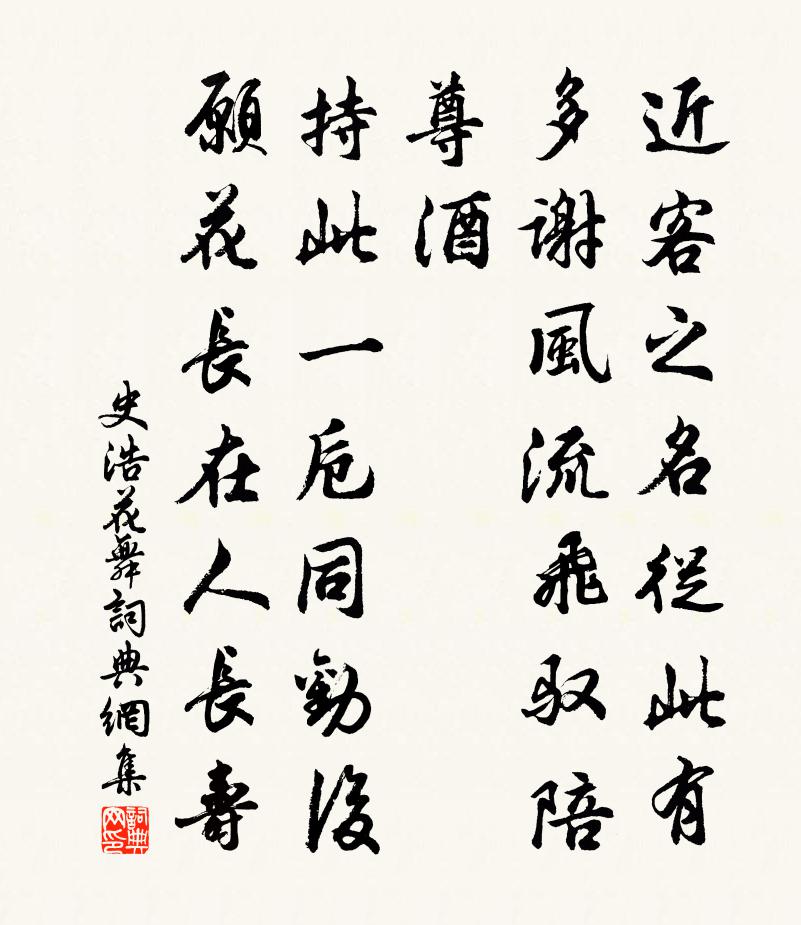 近客之名從此有
多謝風流飛馭陪
尊酒
持此一卮同勸後
願花長在人長壽
史浩花舞詞典網集
詞典網印